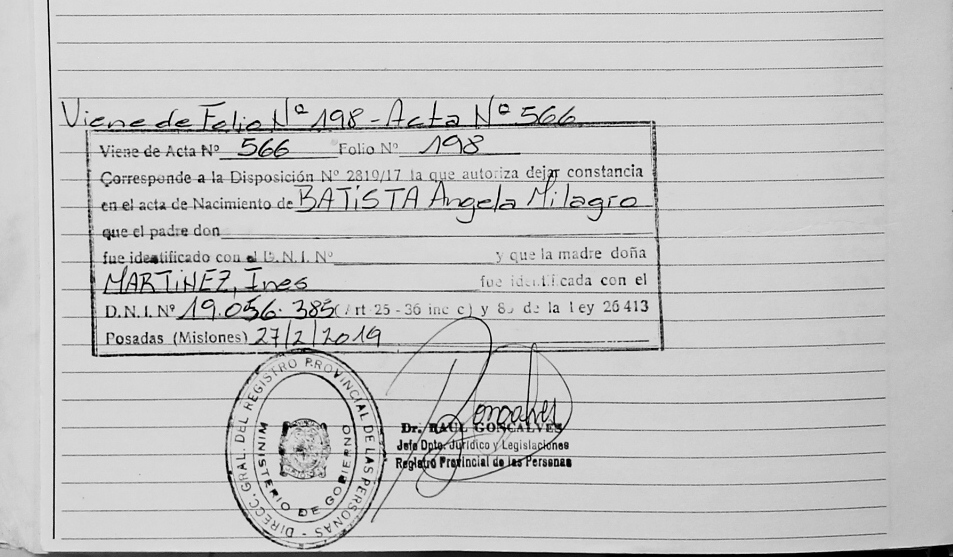 Viene de Folio Nº 198 - Acta Nº 566
Viene de Acta Nº 566 Folio Nº 198
Corresponde a la Disposición Nº 2819/17 la que autoriza dejar constancia
en el acta de Nacimiento de BATiSTA Angela Milagro
que el padre don
fue identificado con el D.N.I. Nº y que la madre doña
MARTiNEZ, Ines fue identificada con el
D.N.I. Nº 19.056.385 (Art 25 - 36 inc c) y 85 de la Ley 26413
Posadas (Misiones) 27/2/2019
DIRECC. GRAL. DEL REGISTRO PROVINCIAL DE LAS PERSONAS -
MINISTERIO DE GOBIERNO
Goncalves
Dr. RAUL GONCALVES
Jefe Dpto. Jurídico y Legislaciones
Registro Provincial de las Personas